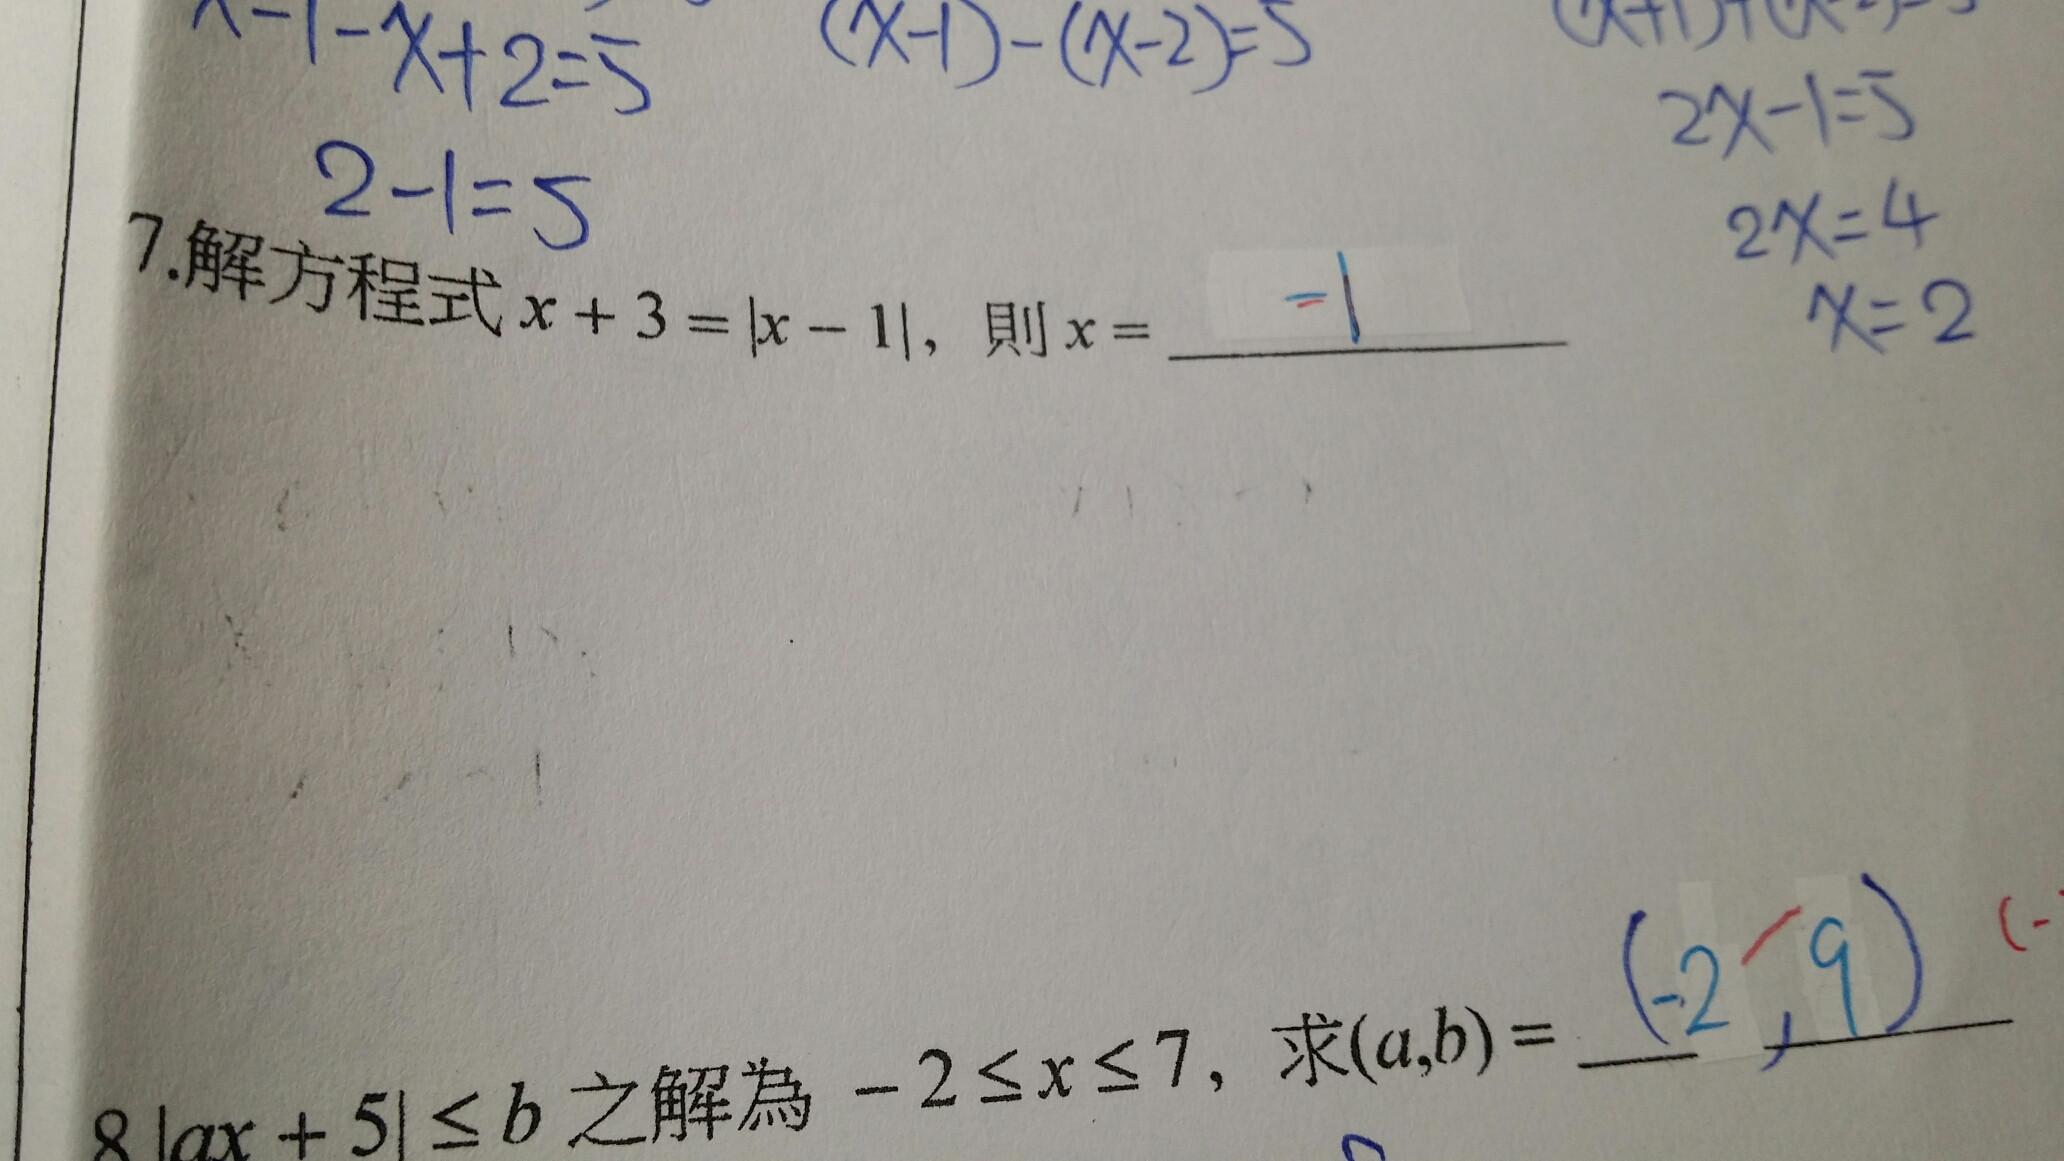 x-1-x+2=5
(x-1)-(x-2)=5
2x-1=5
2-1=5
2x=4
x=2
7.解方程式 x + 3 = |x − 1|, 則 x = -1
(-2, 9)
8.|ax + 5| ≤ b 之解為 −2 ≤ x ≤ 7, 求(a,b) =